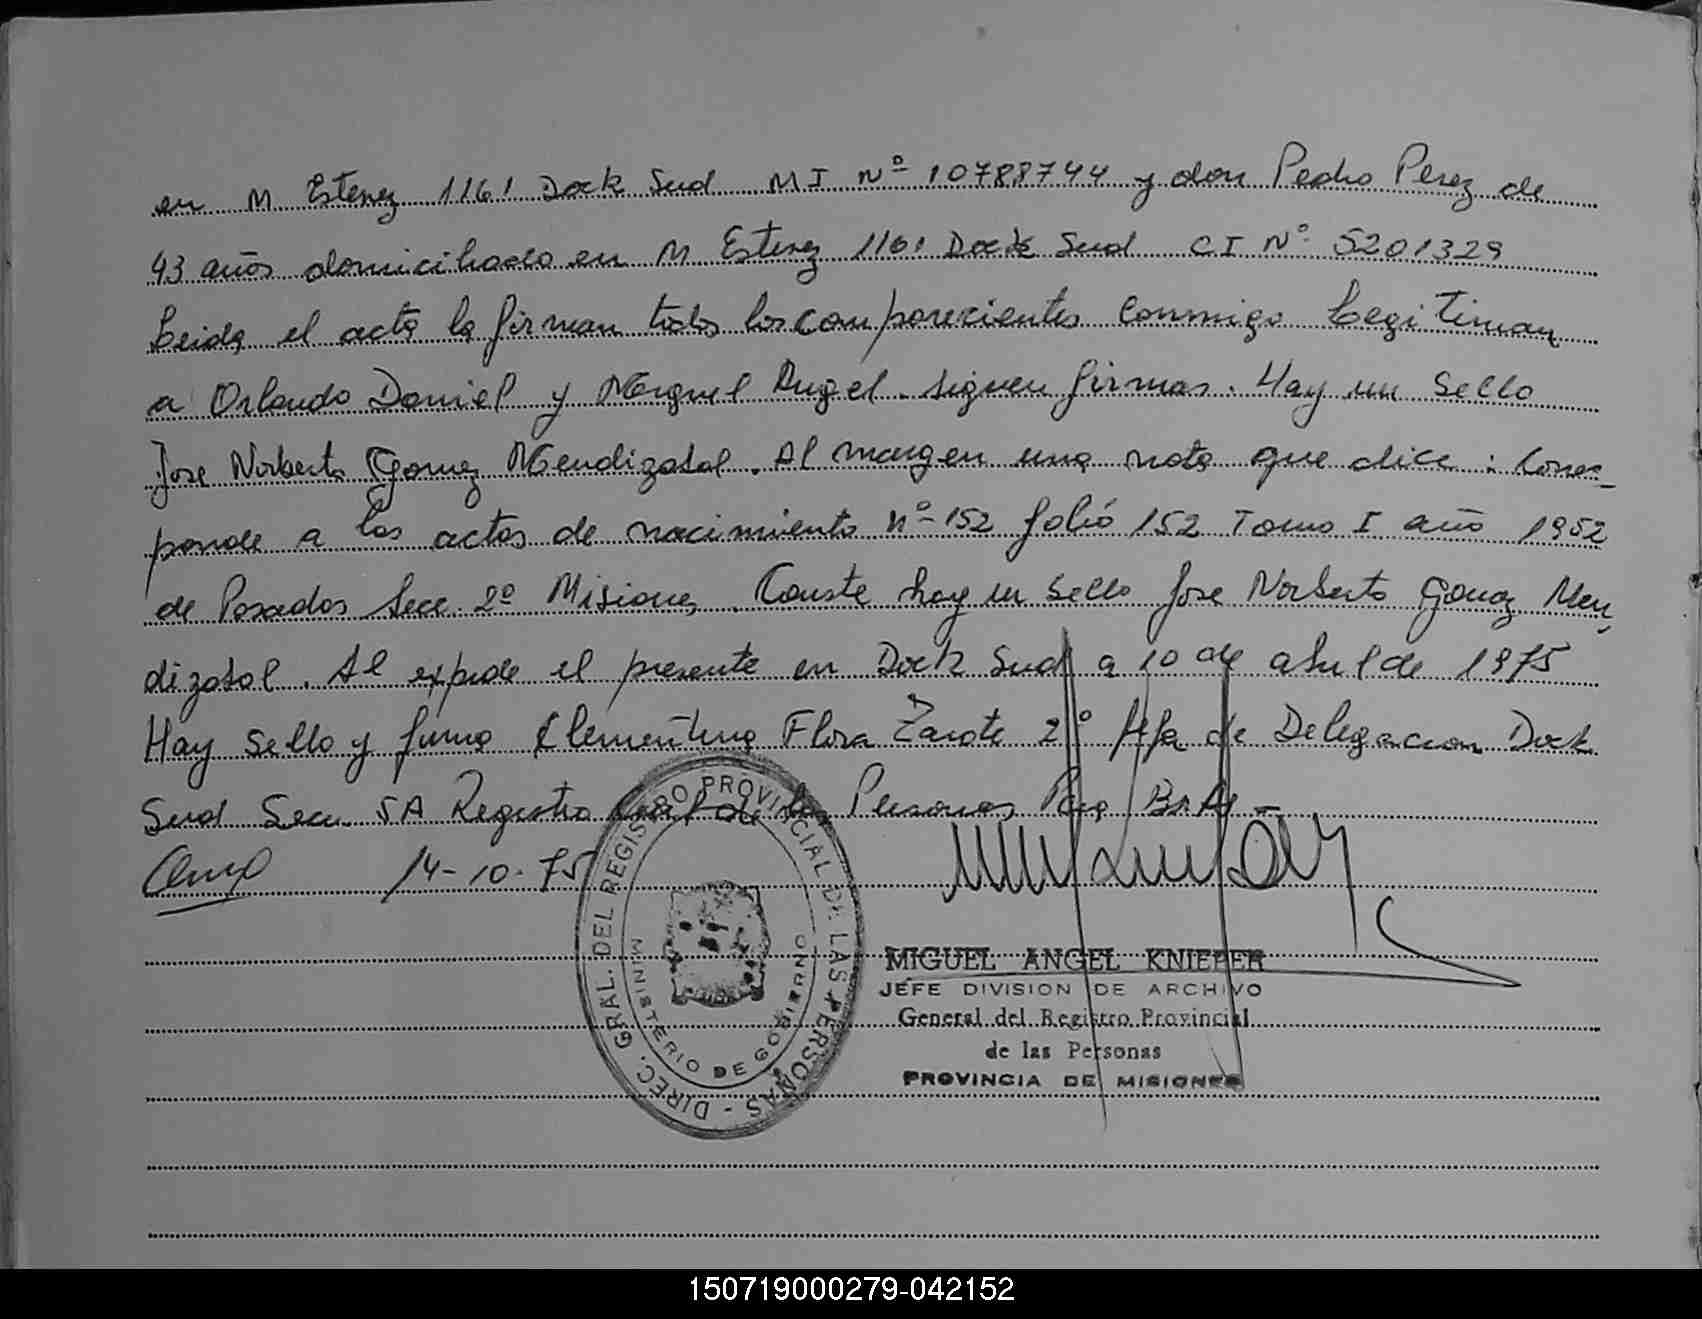 en M Estevez 1161 Dock Sud MI Nº 10788744 y don Pedro Perez de
43 años domiciliado en M Estevez 1161 Dock Sud CI Nº 5201329
Leida el acta la firman todos los comparecientes conmigo Legitiman
a Orlando Daniel y Miguel Angel. siguen firmas. Hay un Sello
Jose Norberto Gomez Mendizabal. Al margen una nota que dice: Corres-
ponde a las actas de nacimiento Nº 152 folio 152 Tomo I año 1952
de Posadas Secc 2º Misiones. Conste hay un Sello Jose Norberto Gomez Men-
dizabal. Al expide el presente en Dock Sud a 10 de abril de 1975
Hay Sello y firma Clementina Flora Zarate 2º Jefa de Delegacion Dock
Sud Secc. 5A Registro de las Personas Pcia Bs As -
14-10-75
DIREC. GRAL. DEL REGISTRO PROVINCIAL DE LAS PERSONAS -
MINISTERIO DE GOBIERNO
MIGUEL ANGEL KNIEPER
JEFE DIVISION DE ARCHIVO
General del Registro Provincial
de las Personas
PROVINCIA DE MISIONES
150719000279-042152